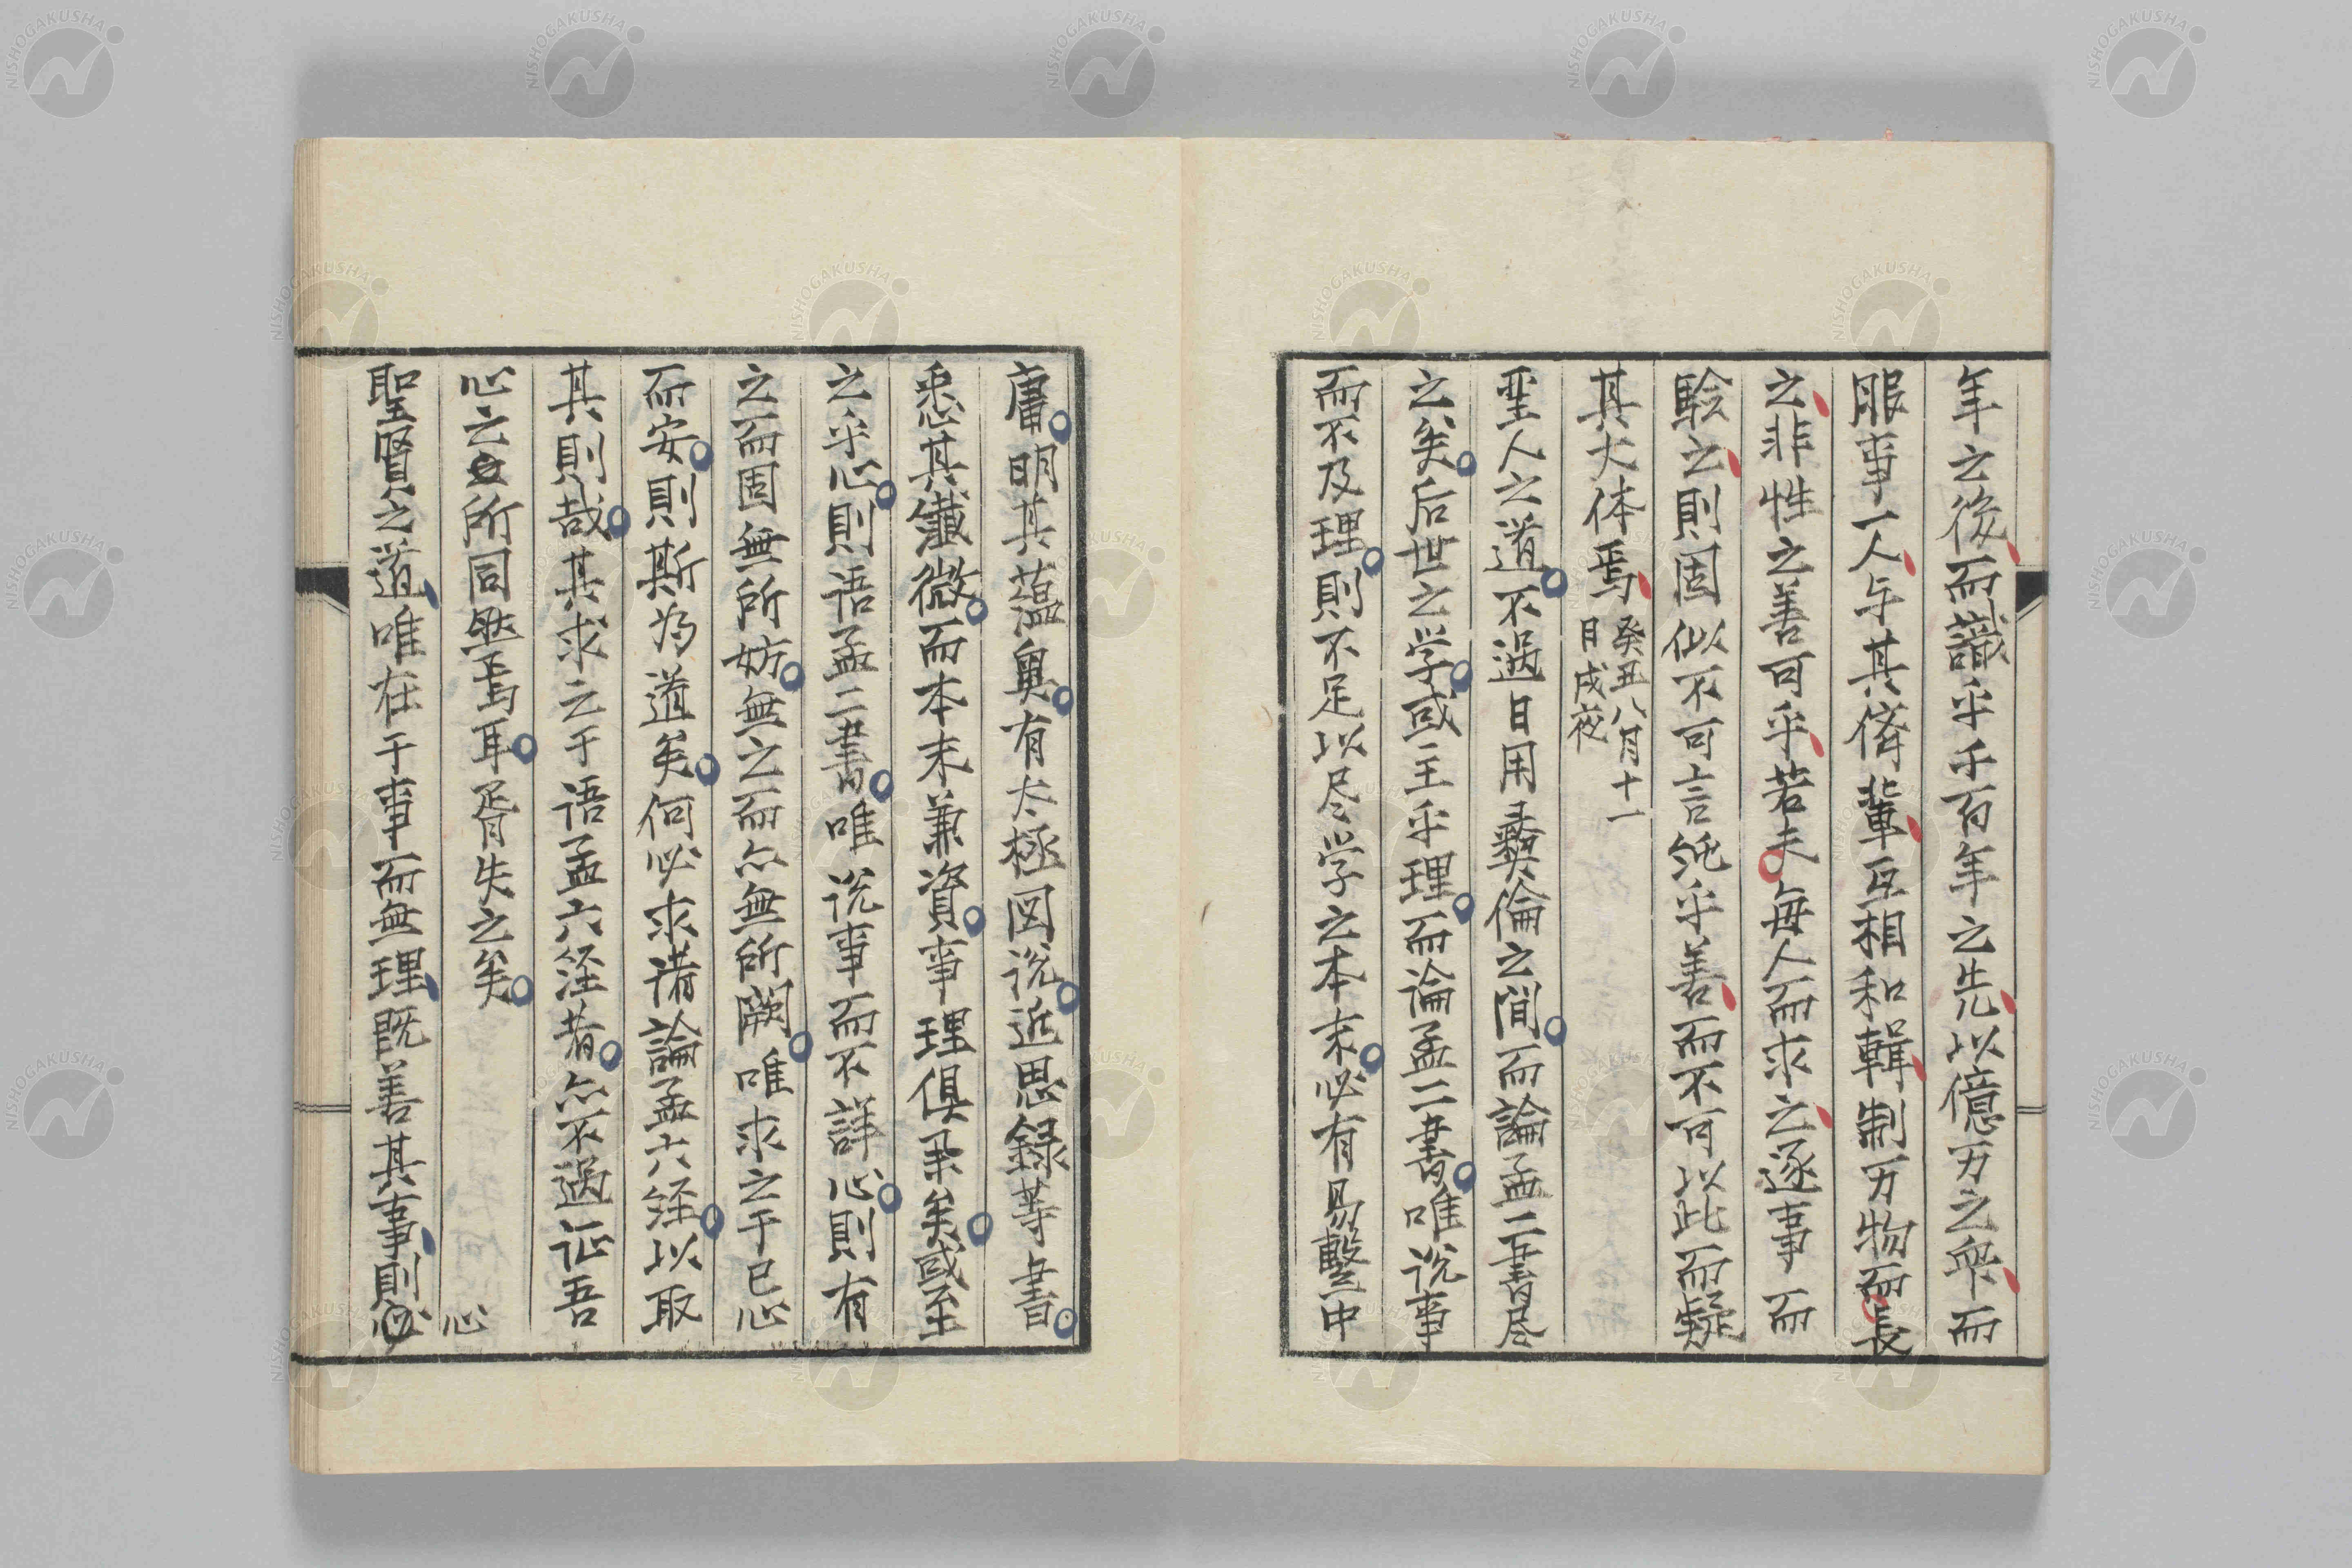 年之後而識乎千百年之先以億万之衆而
服事一人与其儕輩互相和輯制万物而長
之非性之善可乎若夫毎人而求之逐事而
験之則固似不可言純乎善而不可以此而疑
其大体焉癸丑八月十一
日戌夜
聖人之道不過日用彝倫之間而論孟二書尽
之矣后世之学或主乎理而論孟二書唯説事
而不及理則不足以尽学之本末必有易繫中
庸明其蘊奥有太極図説近思録等書
悉其纎微而本末兼資事理倶果矣或至
之乎心則語孟二書唯説事而不詳心則有
之而固無所妨無之而亦無所闕唯求之于己心
而安則斯為道矣何必求諸論孟六経以取
其則哉其求之于語孟六経者亦不過証吾
心之所同然焉耳胥失之矣
聖賢之道唯在于事而無理既善其事則心
NISHOGAKUSHA